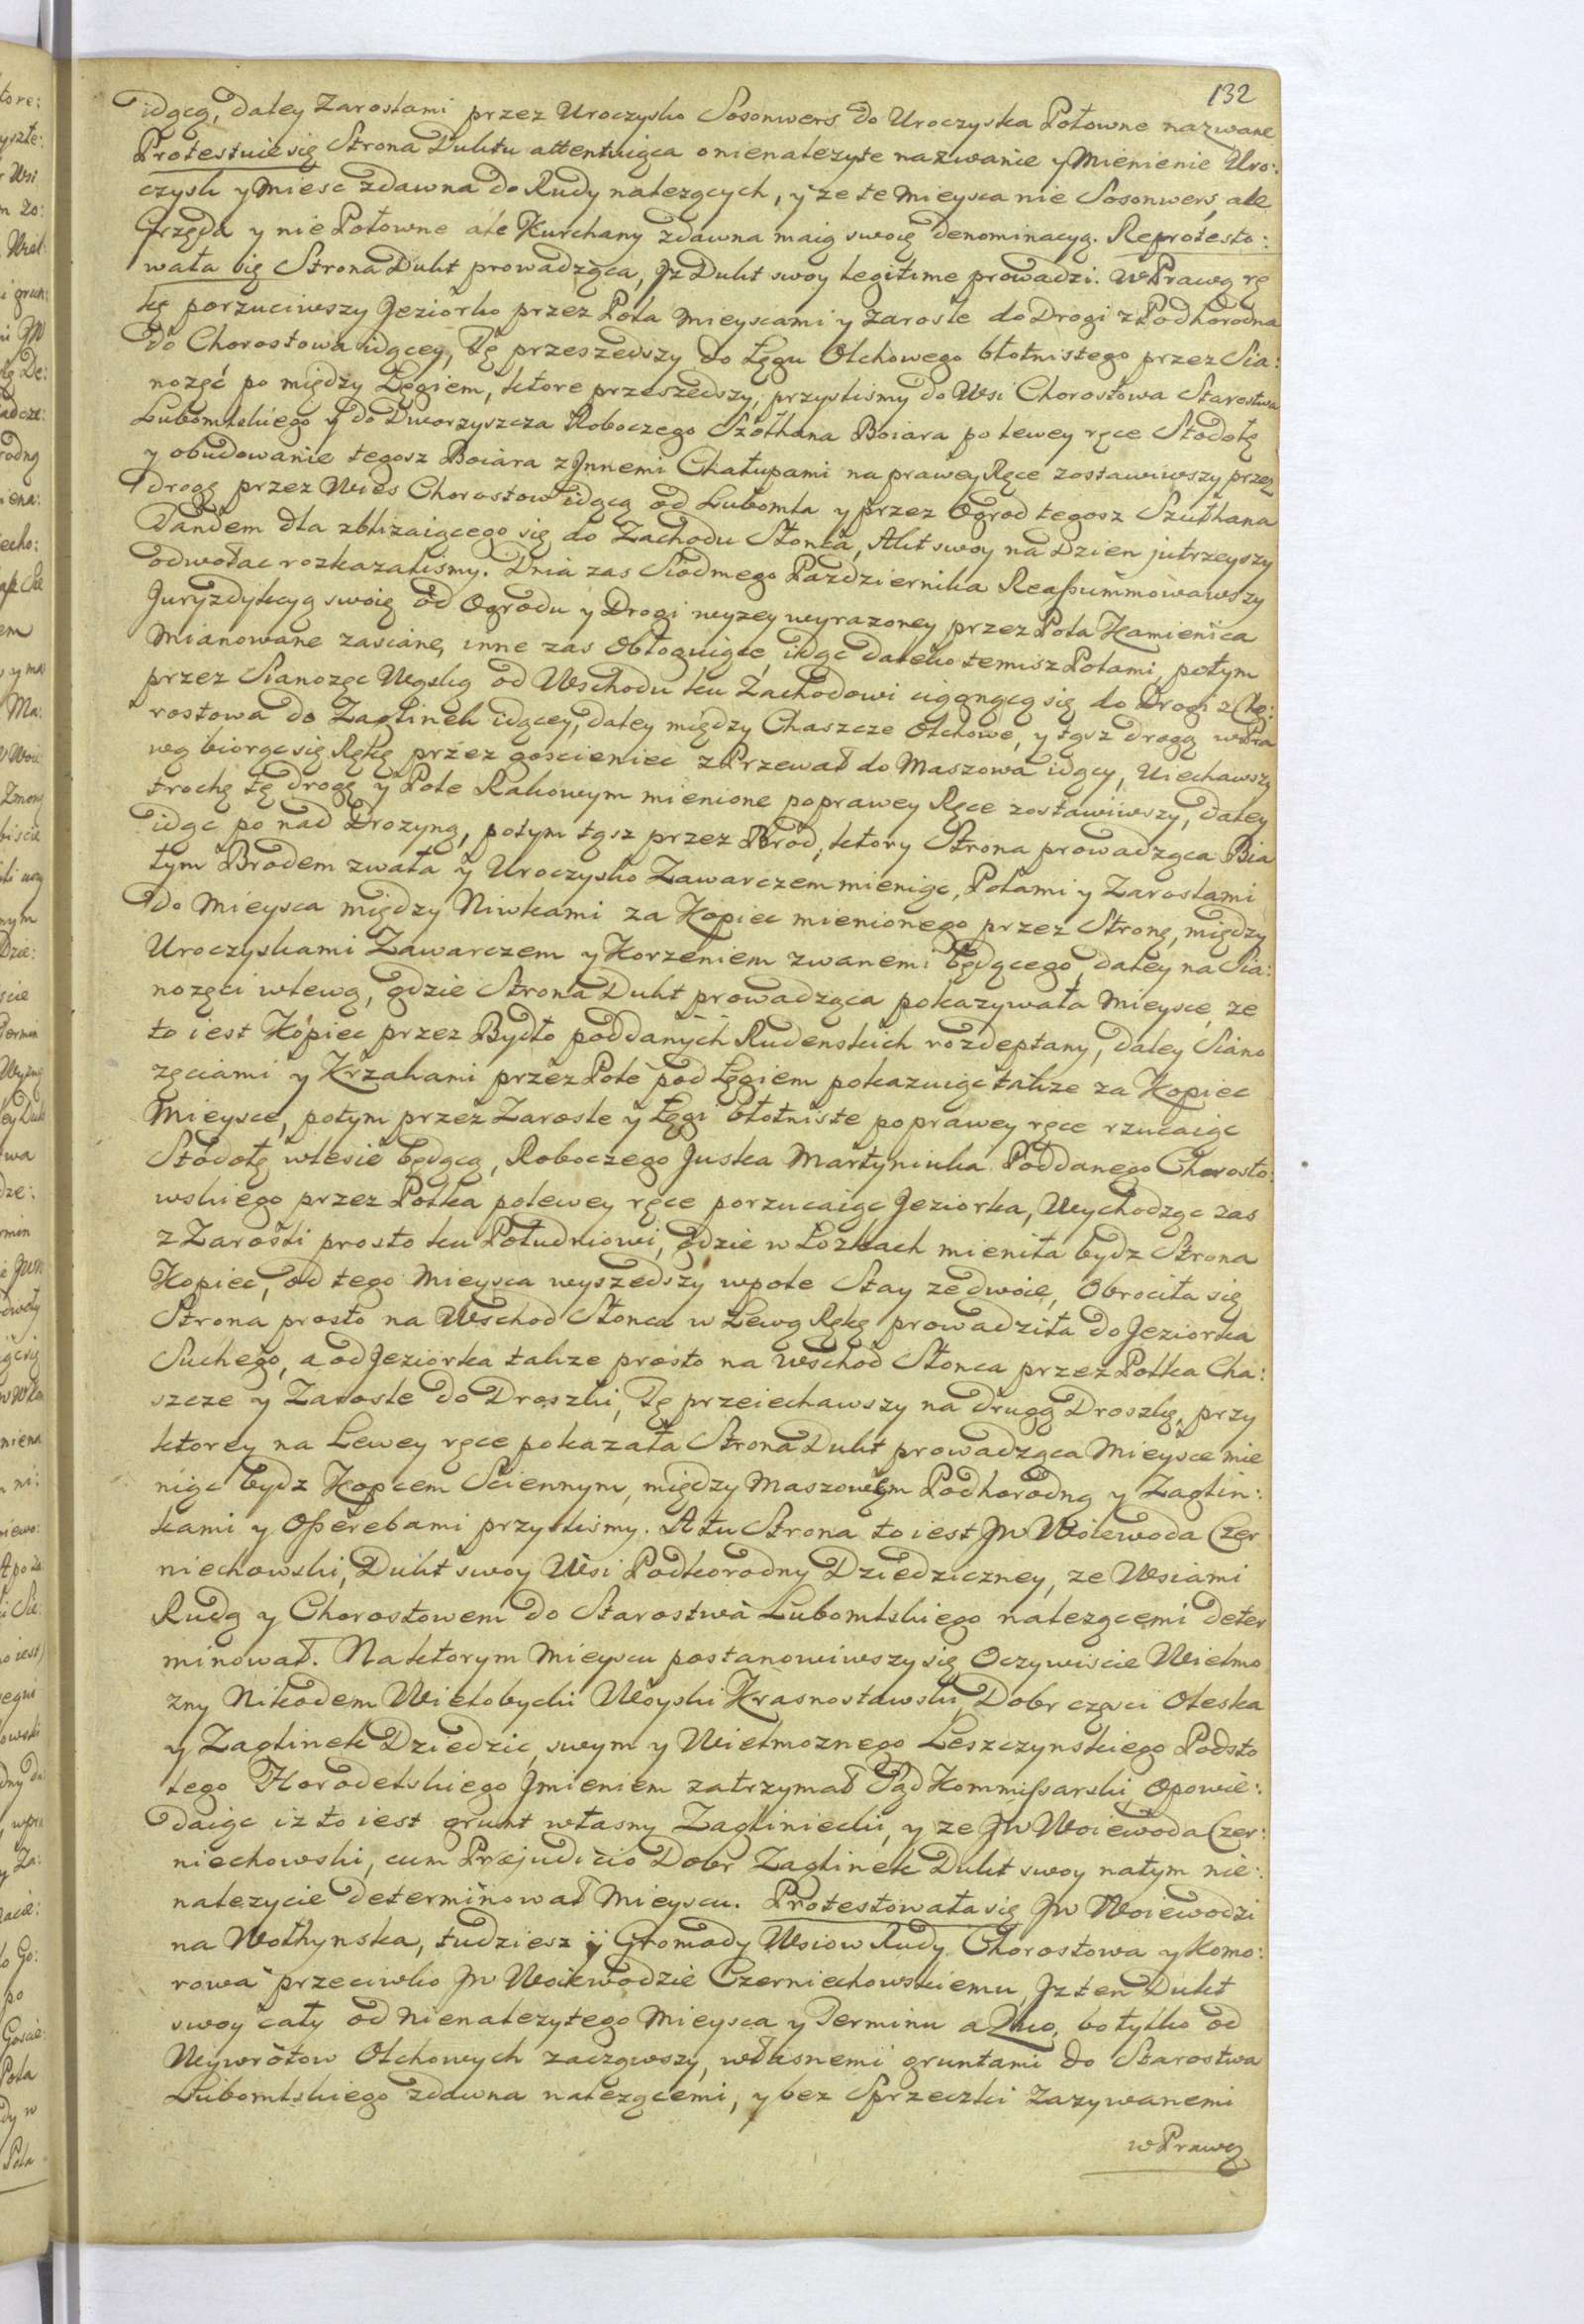 132
idącą, daley Zaroslami przez Uroczysko Sosonwers do Uroczyska Połowne nazwane
Protestuie się Strona Duktu attentuiąca o nienalezyte nazwanie y Mienienie Uro:
czysk y Miesc zdawna do Rudy nalezących, y ze te Mieysca nie Sosonwers, ale
Hrzęda y nie Połowne ale Kurchany zdawna maią swoię denominacyą. Reprotesto:
wała się Strona Dukt prowadząca, Jz Dukt swoy legitime prowadzi. W Prawą rę
kę porzuciwszy Jeziorko przez Pola Mieyscami y Zarosle do Drogi z Podhorodna
do Chorostowa idącey, Tę przeszedszy do Łęgu Olchowego błotnistego przez Sia:
nozęć po między Łęgiem, ktore przeszedszy, przyslismy do Wsi Chorostowa Starostwa
Lubomlskiego y do Dworzyszcza Roboczego Szołhana Boiara po lewey ręce Stodołę
y obudowanie tegosz Boiara z Jnnemi Chałupami na prawey Ręce zostawiwszy przez
drogę przez Wies Chorostow idącą od Lubomla y przez Ogrod tegosz Szułhana
Tandem dla zblizaiącego się do Zachodu Słonca, Akt swoy na Dzien jutrzeyszy
odwołac rozkazalismy. Dnia zas Siodmego Pazdziernika Reassummowawszy
Juryzdykcyą swoię od Ogrodu y Drogi wyzey wyrazoney przez Pola Kamienica
Mianowane zasiane, inne zas Obłoguiące, idąc daleko temisz Polami, potym
przez Sianozęc Wąską od Wschodu ku Zachodowi ciągnącą się do Drogi z Cho:
rostowa do Zaglinek idącey, daley między Chaszcze Olchowe, y tąsz drogą w Pra
wą biorąc się Rękę przez goscieniec z Przewał do Maszowa idący, Uiechawszy
trochę tę drogę y Pole Rakowym mienione po prawey Ręce zostawiwszy, daley
idąc po nad Drozyną, potym tąsz przez Brod, ktory Strona prowadząca Bia
łym Brodem zwała y Uroczysko Zawarczem mieniąc, Polami y Zaroslami
do Mieysca między Niwkami za Kopiec mienionego przez Stronę, między
Uroczyskami Zawarczem y Korzeniem zwanemi będącego, daley na Sia:
nozęci w lewą, gdzie Strona Dukt prowadząca pokazywała Mieysce, ze
to iest Kopiec przez Bydło poddanych Rudenskich rozdeptany, daley Siano
zęciami y Krzakami przez Pole pod Łęgiem pokazuiąc także za Kopiec
Mieysce, potym przez Zarosle y Łęgi błotniste po prawey ręce rzucaiąc
Stodołę w lesie będącą, Roboczego Juska Martyniuka Poddanego Chorosto:
wskiego przez Polka po lewey ręce porzucaiąc Jeziorka, Wychodząc zas
z Zarosli prosto ku Południowi, gdzie w Łozkach mieniła bydz Strona
Kopiec, od tego Mieysca wyszedszy w pole Stay ze dwoie, Obrociła się
Strona prosto na Wschod Słonca w Lewą Rękę prowadziła do Jeziorka
Suchego, a od Jeziorka także prosto na Wschod Słonca przez Polka Cha:
szcze y Zarosle do Droszki, Tę przeiechawszy na drugą Droszkę, przy
ktorey na Lewey ręce pokazała Strona Dukt prowadząca Mieysce mie
niąc bydz Kopcem Sciennym, między Maszowem Podhorodną y Zaglin:
kami y Osserebami przyslismy. A tu Strona to iest JW Woiewoda Czer
niechowski, Dukt swoy Wsi Podhorodny Dziedziczney, ze Wsiami
Rudą y Chorostowem do Starostwa Lubomlskiego nalezącemi deter
minował. Na ktorym Mieyscu postanowiwszy się Oczywiscie Wielmo
zny Nikodem Wielobycki Woyski Krasnostawski, Dobr częsci Oleska
y Zaglinek Dziedzic, swym y Wielmoznego Leszczynskiego Podsto
lego Horodelskiego Jmieniem zatrzymał Sąd Kommissarski, Opowie:
daiąc iz to iest grunt własny Zagliniecki, y ze JW Woiewoda Czer:
niechowski, cum Præjudicio Dobr Zaglinek Dukt swoy na tym nie:
nalezycie determinował Mieyscu. Protestowała się JW Woiewodzi
na Wołhynska, tudziesz y Gromady Wsiow Rudy Chorostowa y Komo:
rowa przeciwko JW Woiewodzie Czerniechowskiemu, Jz ten Dukt
swoy cały od Nienalezytego Mieysca y Terminu a Quo, bo tylko od
Wywrotow Olchowych zacząwszy, własnemi gruntami do Starostwa
Lubomlskiego zdawna nalezącemi, y bez Sprzeczki Zazywanemi
w Prawą